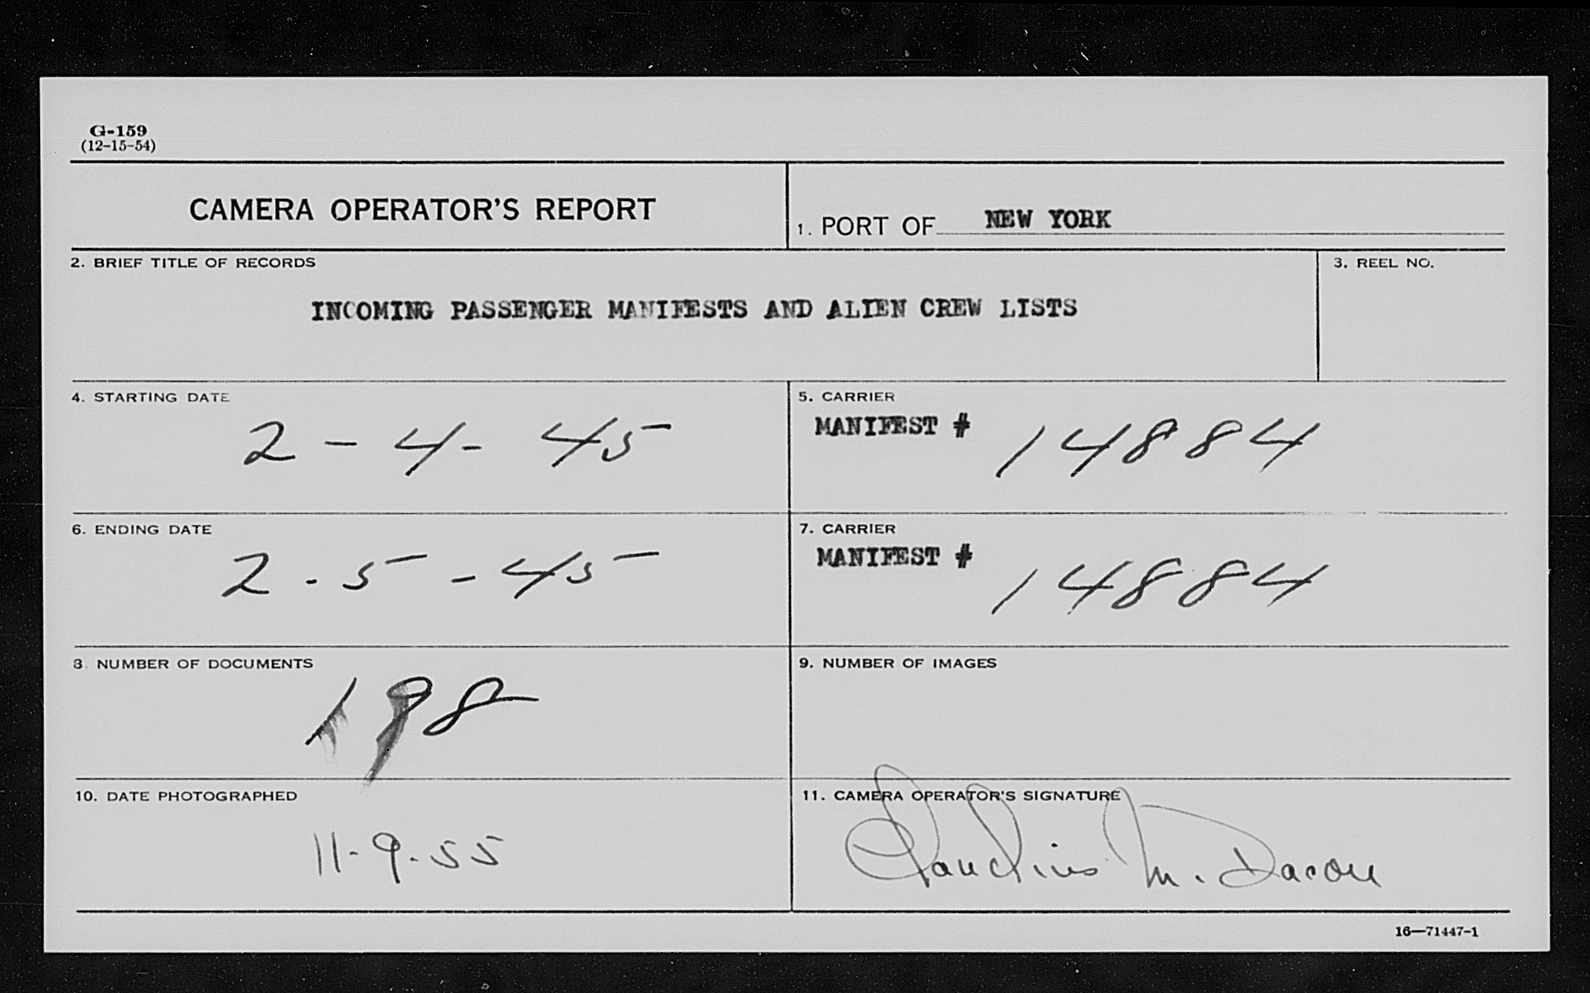 G-159
(12-15-54)
CAMERA OPERATOR'S REPORT
1. PORT OF NEW YORK
2. BRIEF TITLE OF RECORDS
3. REEL NO.
INCOMING PASSENGER MANIFESTS AND ALIEN CREW LISTS
4. STARTING DATE
2-4-45
5. CARRIER
MANIFEST # 14884
6. ENDING DATE
2-5-45
7. CARRIER
MANIFEST # 14884
8 NUMBER OF DOCUMENTS
198
9. NUMBER OF IMAGES
10. DATE PHOTOGRAPHED
11-9-55
11. CAMERA OPERATOR'S SIGNATURE
Claudius M. Dacon
16—71447-1